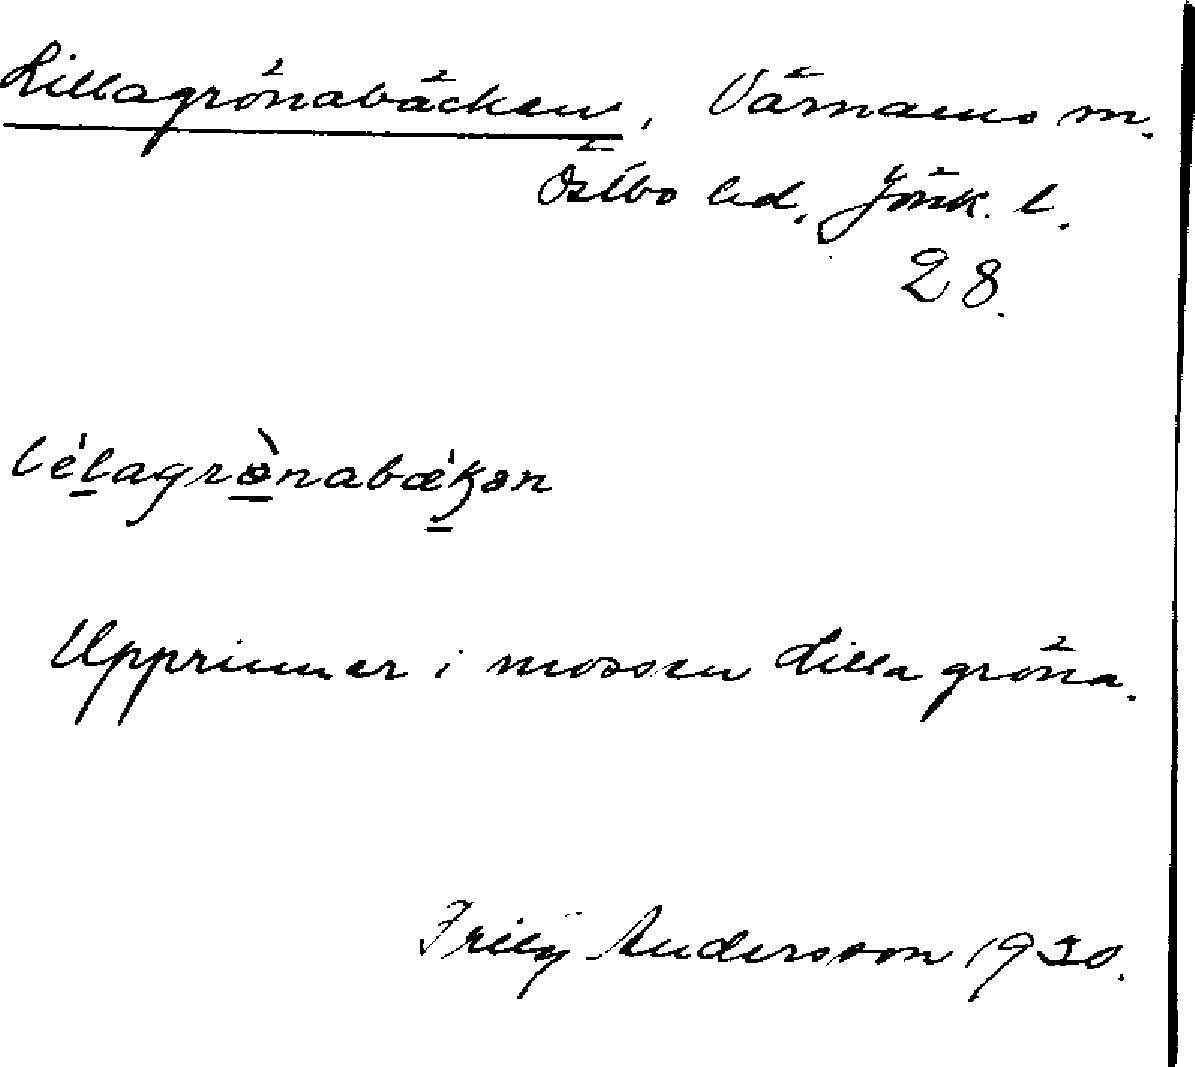 Lillagrönabäcken, Värnamo sn.
Östbo hd, Jönk. l.
28.
lélagrònabǽkən
Upprinner i mossen Lilla gröna.
Andersson 1930.